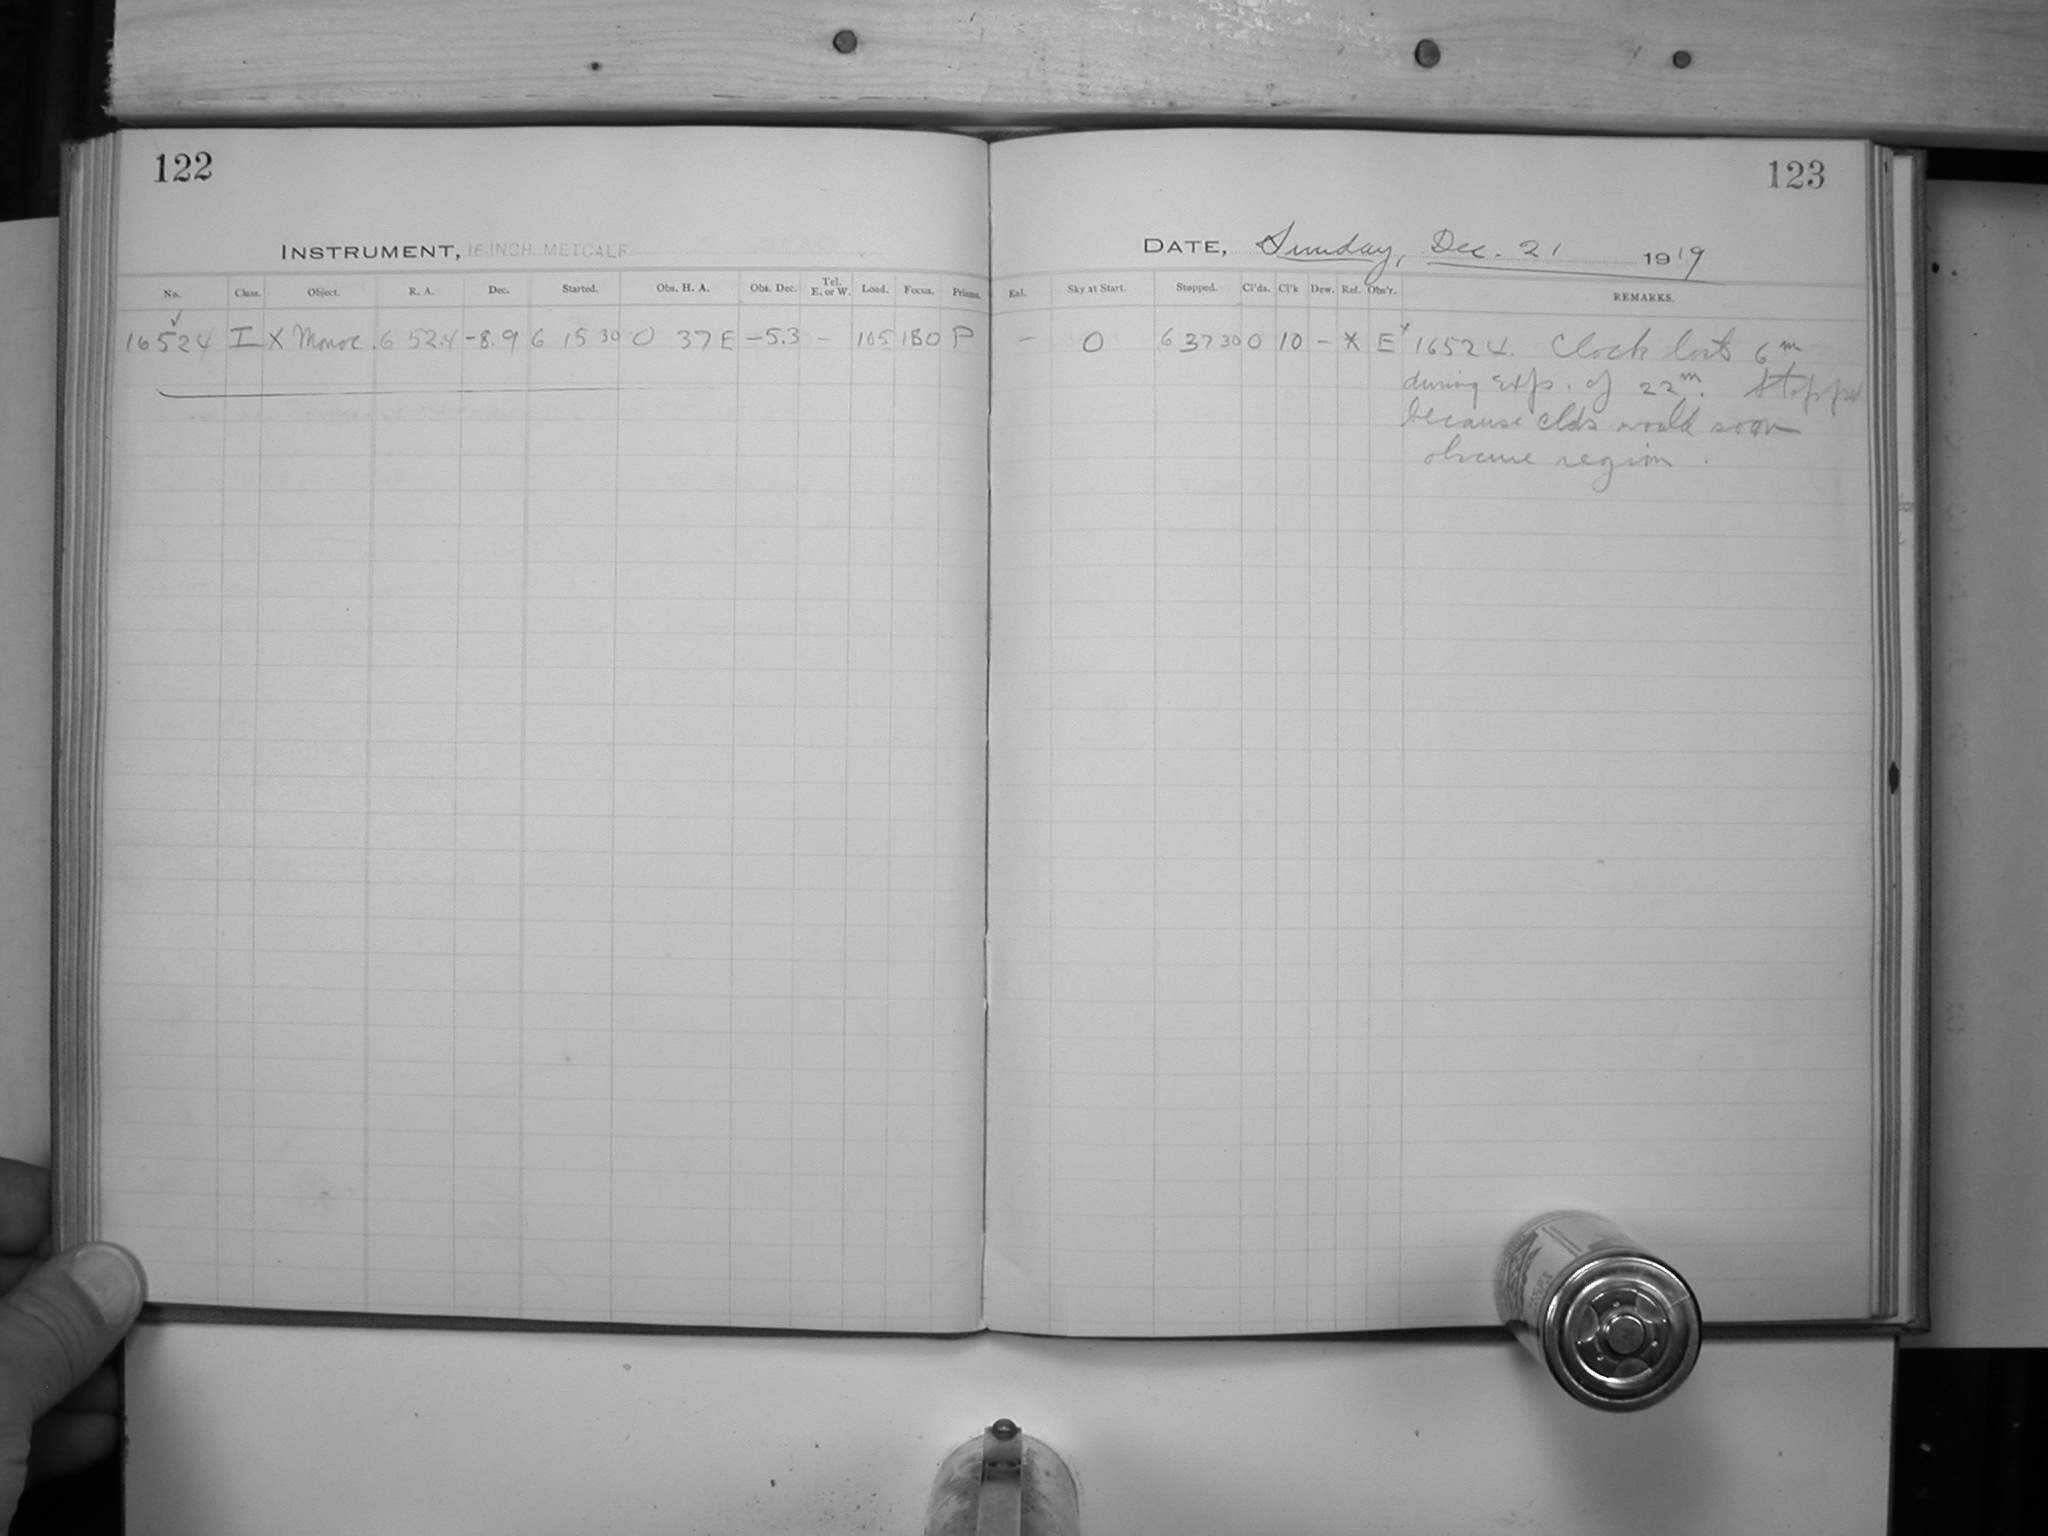 122
INSTRUMENT, 16-INCH METCALF
No. Class. Object. R. A. Dec. Started. Obs. H. A. Obs. Dec. Tel. E. or W. Load. Focus. Prisms.
16524 I X Monoc. 6 52.4 -8.9 6 15 30 0 37 E -5.3 - 105 180 P
123
DATE, Sunday, Dec. 21 1919
Enl. Sky at Start. Stopped. Cl'ds. Cl'k Dew. Ref. Obs'r. REMARKS.
- 0 6 37 30 0 10 - * E x 16524. Clock lost 6m
during exp. of 22m. Stopped
because clds would soon
obscure region.